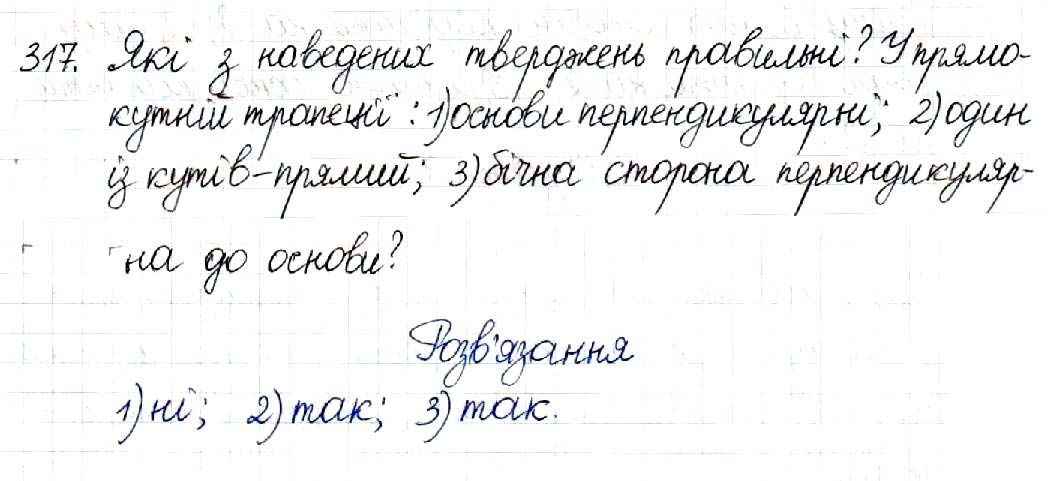 317. Які з наведених тверджень правильні? У прямо-
кутній трапеції: 1) основи перпендикулярні; 2) один
із кутів - прямий; 3) бічна сторона перпендикуляр-
на до основи?
Розв'язання
1) ні; 2) так; 3) так.